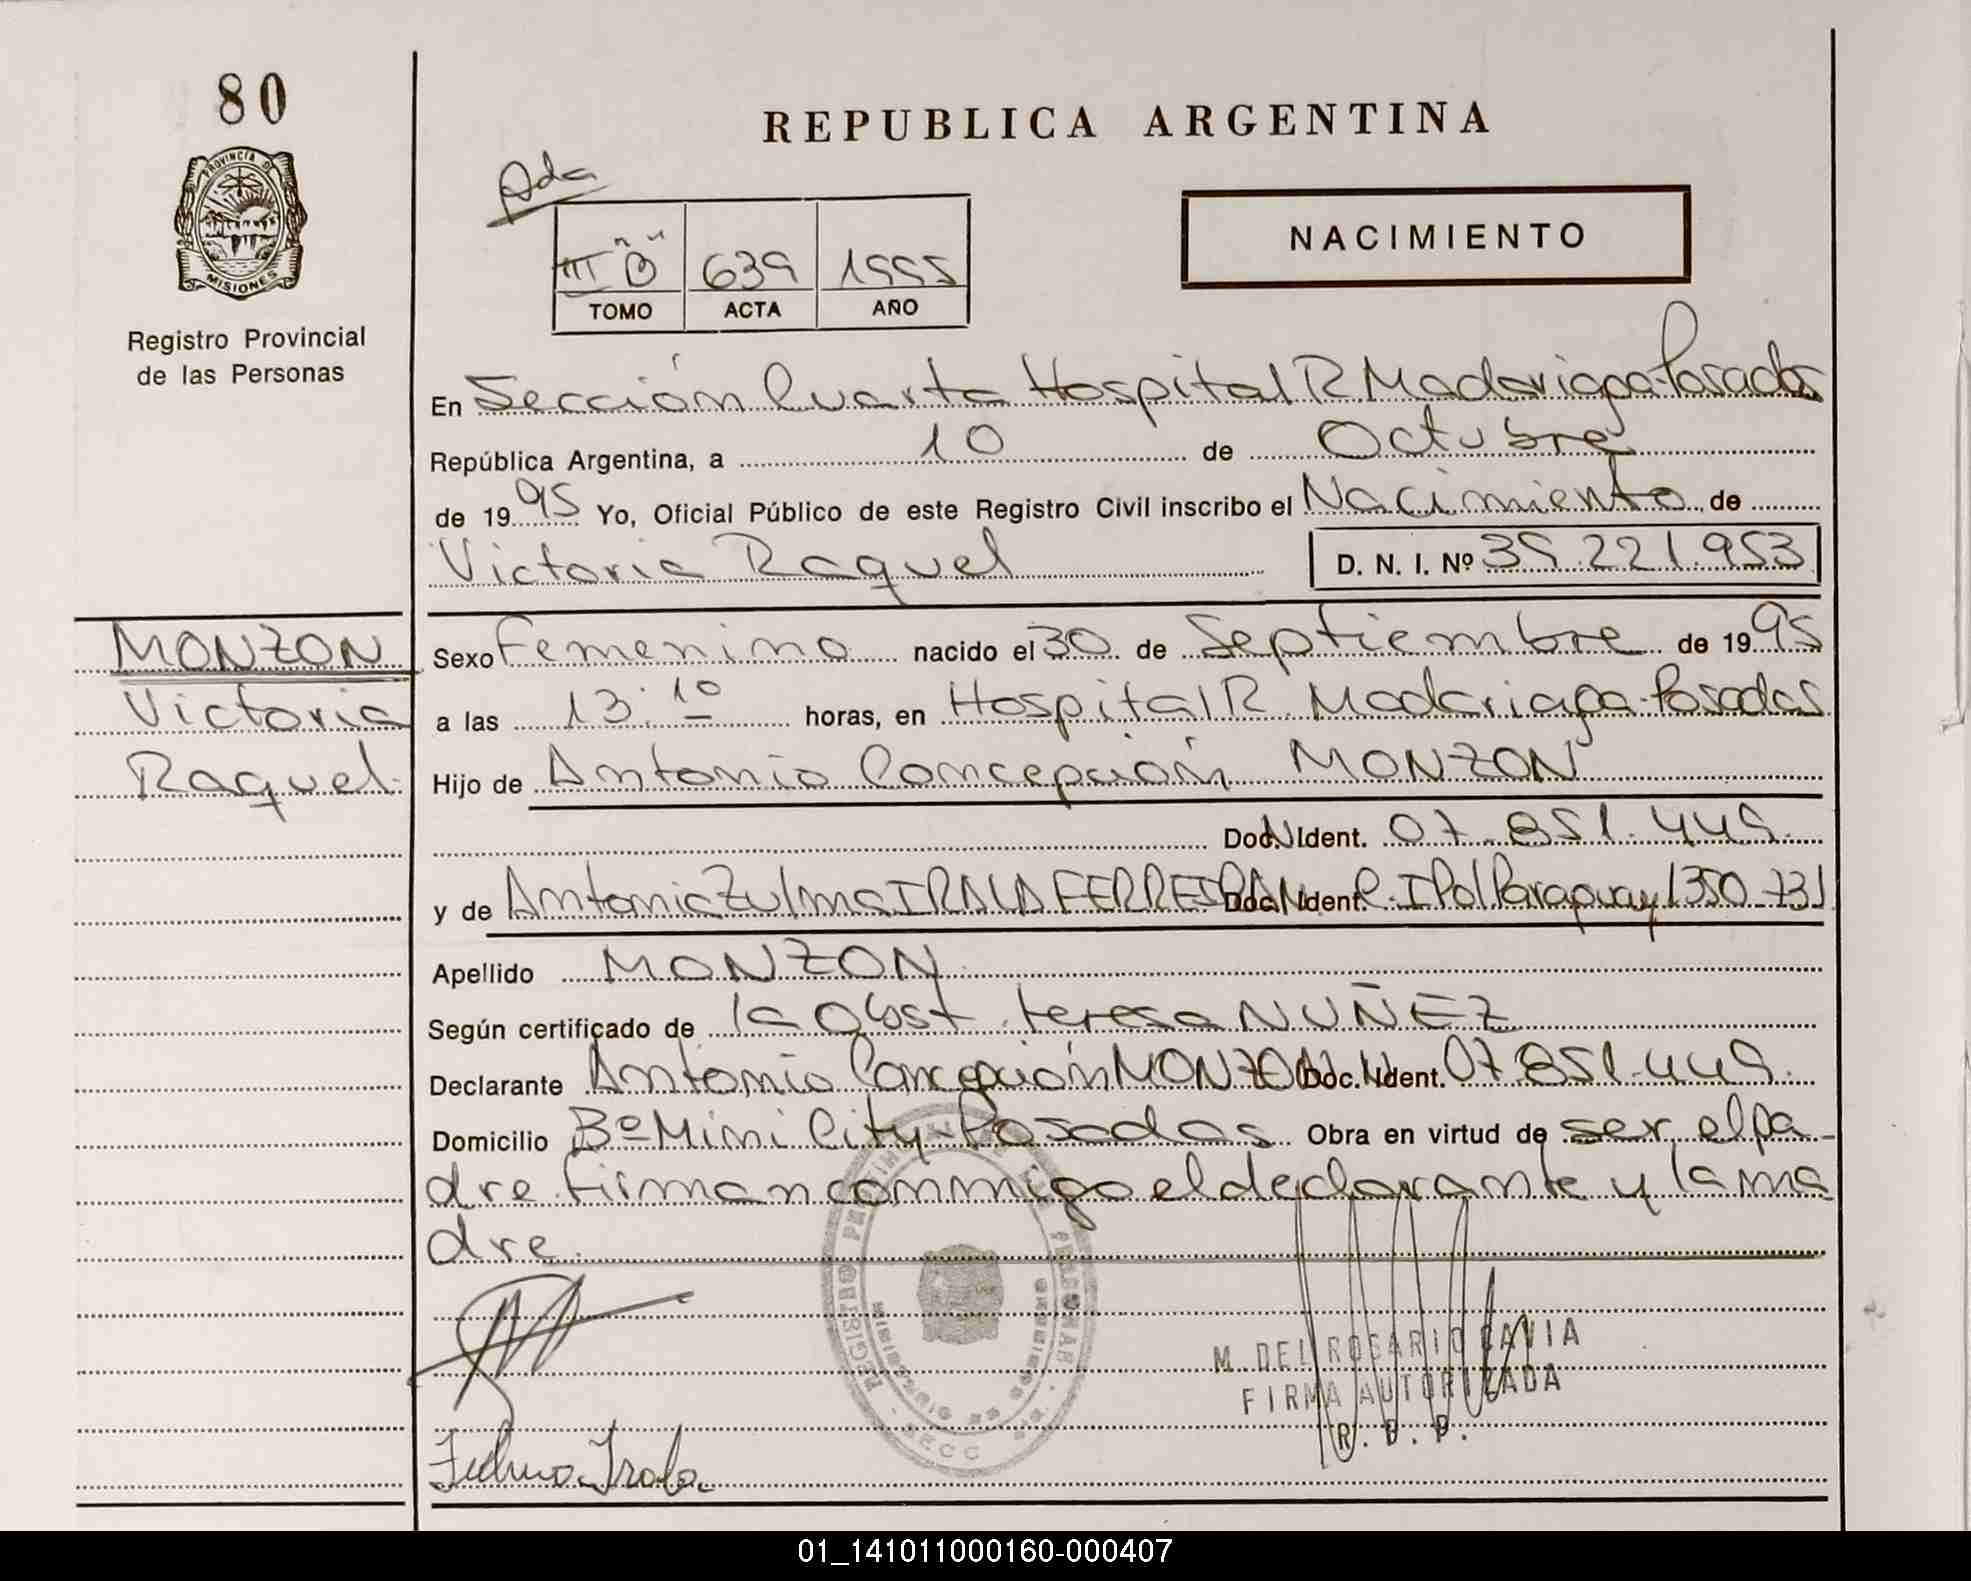 80
REPUBLICA ARGENTINA
PROVINCIA DE
MISIONES
Registro Provincial
de las Personas
Ada
III "B" 639 1995
TOMO ACTA AÑO
NACIMIENTO
En Sección Cuarta Hospital R Madariaga-Posadas
República Argentina, a 10 de Octubre
de 1995 Yo, Oficial Público de este Registro Civil inscribo el Nacimiento de
Victoria Raquel D. N. I. Nº 39.221.953
MONZON
Victoria
Raquel
Sexo Femenino nacido el 30 de Septiembre de 1995
a las 13:10 horas, en Hospital R. Madariaga-Posadas
Hijo de Antonio Concepción MONZON
Doc. N Ident. 07.851.449
y de Antonia Zulma IRALA FERREIRA Doc. N Ident. C.I Pol Paraguay 1350.731
Apellido MONZON
Según certificado de la Obst. teresa NUÑEZ
Declarante Antonio Concepción MONZON Doc. N Ident. 07.851.449
Domicilio Bº Mini City-Posadas Obra en virtud de ser el pa-
dre. firman conmigo el declarante y la ma
dre.
M. DEL ROSARIO GAVIA
FIRMA AUTORIZADA
R. P. P.
Zulma Irala
01_141011000160-000407